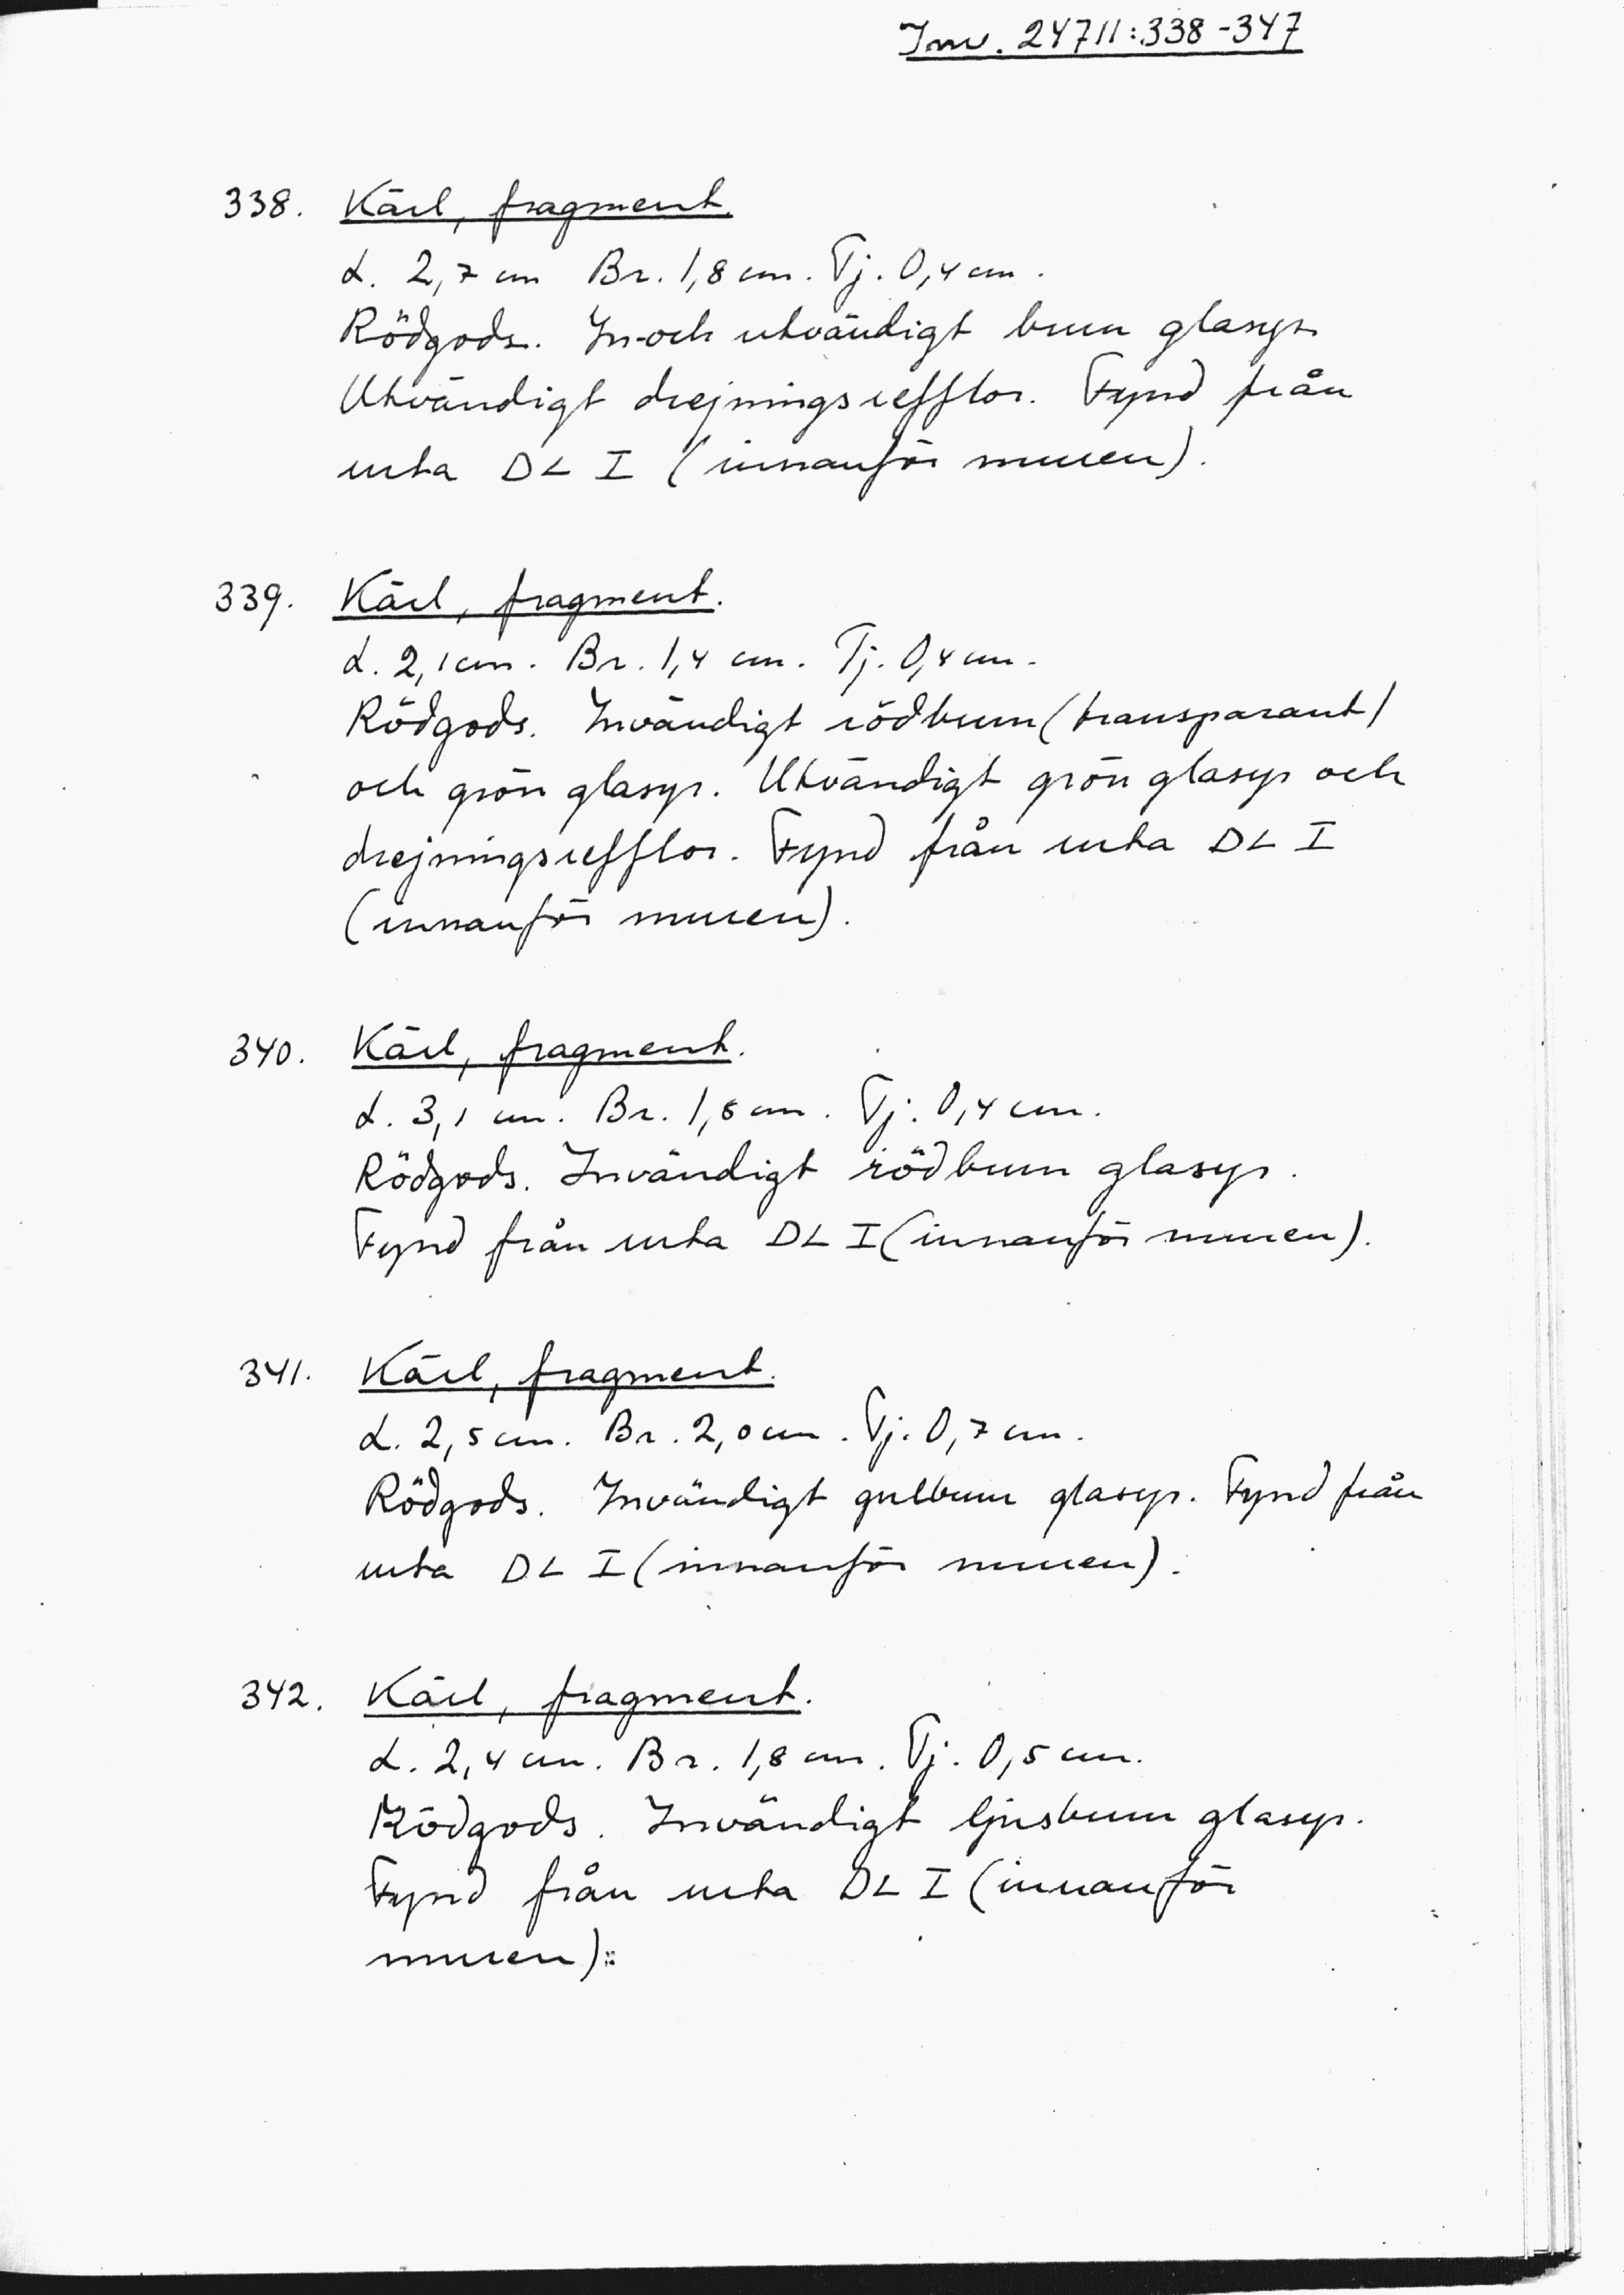 Inv. 24711:338-347
338. Kärl, fragment.
L. 2,7 cm Br. 1,8 cm. Tj. 0,4 cm.
Rödgods. In-och utvändigt brun glasyr.
Utvändigt drejningsrefflor. Fynd från
ruta DL I (innanför muren).
339. Kärl, fragment.
L. 2,1 cm. Br. 1,4 cm. Tj. 0,4 cm.
Rödgods. Invändigt rödbrun (transparant)
och grön glasyr. Utvändigt grön glasyr och
drejningsrefflor. Fynd från ruta DL I
(innanför muren).
340. Kärl, fragment.
L. 3,1 cm. Br. cm. Tj. 0,4 cm.
Rödgods. Invändigt rödbrun glasyr.
Fynd från ruta DL I (innanför muren).
341. Kärl, fragment.
L. 2,5 cm. Br. 2,0 cm. Tj. 0,7 cm.
Rödgods. Invändigt gulbrun glasyr. Fynd från
ruta DL I (innanför muren).
342. Kärl, fragment.
L. 2,4 cm. Br. 1,8 cm. Tj. 0,5 cm.
Rödgods. Invändigt ljusbrun glasyr.
Fynd från ruta DL I (innanför
muren).